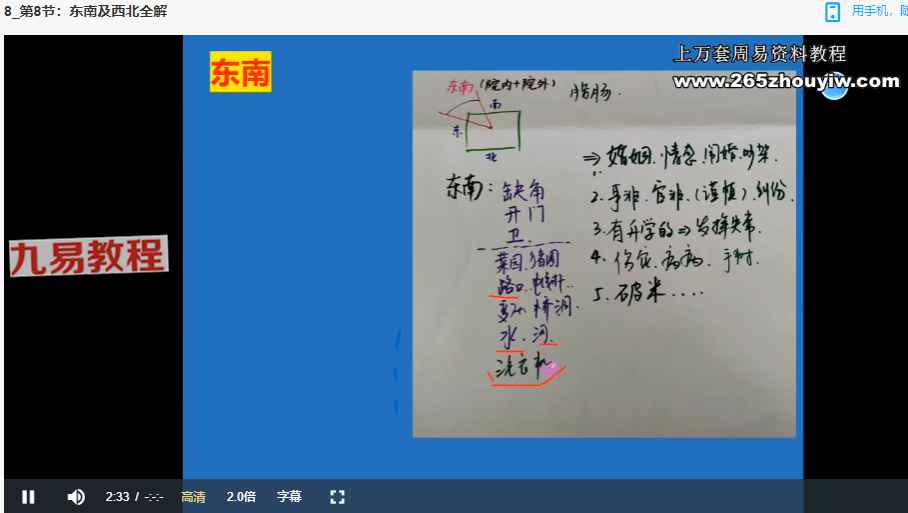 8_第8节：东南及西北全解
用手机，随
上万套周易资料教程
www.265zhouyiw.com
东南
九易教程
东南（院内+院外）
南
东
北
⇒ 婚姻.情念.闹婚.吵架.
东南：缺角
开门
卫.
菜园.猪圈
路口.
桥洞.
水.河.
洗衣机
2.是非.官非.(谨慎).纠纷.
3.有升学的⇒发挥失常.
4.伤灾.疾病.手术.
5.破米....
2:33 / -:-:-
高清
2.0倍
字幕